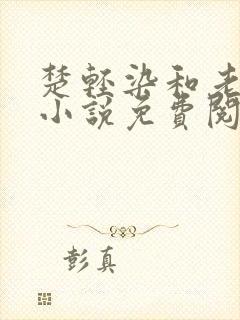 楚轻染和老
小说免費閱
彭真